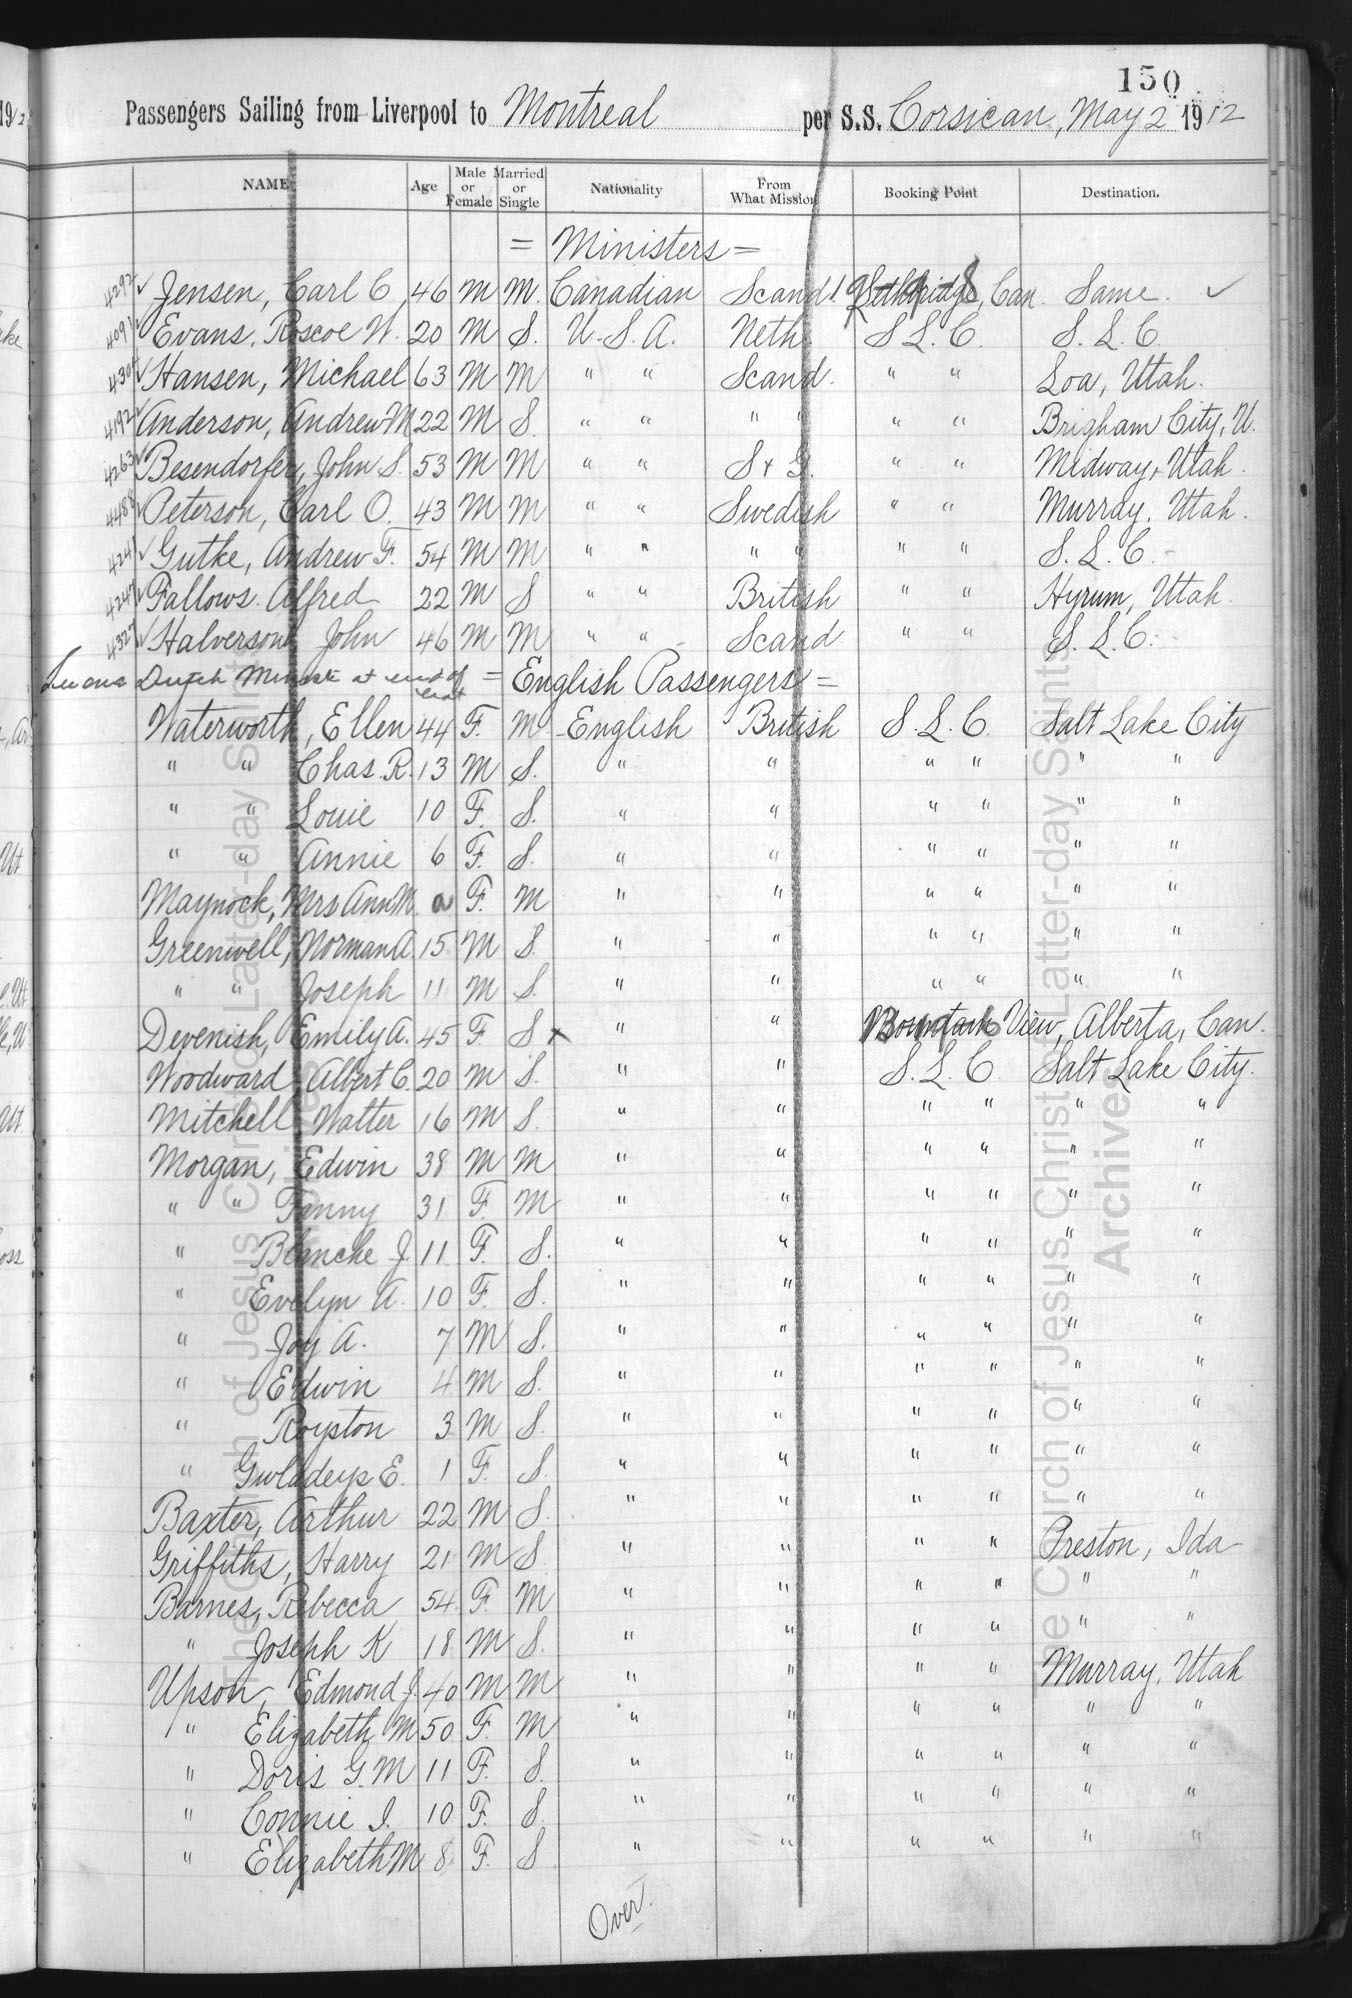 150
Passengers Sailing from Liverpool to Montreal per S.S. Corsican, May 2 1912
NAME Age Male or Female Married or Single Nationality From What Mission Booking Point Destination.
= Ministers =
4292 ✓ Jensen, Carl C. 46 M M. Canadian Scand. Lethbridge, Can. Same. ✓
4091 ✓ Evans, Roscoe W. 20 M S. U.S.A. Neth. S.L.C. S.L.C.
✓ Hansen, Michael 63 M M " " Scand. " " Loa, Utah.
4192 ✓ Anderson, Andrew M 22 M S. " " " " " " Brigham City, U.
4263 ✓ Besendorfer, John S. 53 M M " " S & G. " " Midway, Utah.
4488 ✓ Peterson, Carl O. 43 M M " " Swedish " " Murray, Utah.
4241 ✓ Gutke, Andrew F. 54 M M " " " " " " S.L.C.
4247 ✓ Fallows Alfred 22 M S " " British " " Hyrum, Utah.
4327 ✓ Halverson, John 46 M M " " Scand " " S.L.C.
See one Dutch Minister at end of list = English Passengers =
Waterworth, Ellen 44 F. M. English British S.L.C. Salt Lake City
" " Chas. R. 13 M S. " " " " " "
" " Louie 10 F. S. " " " " " "
" " Annie 6 F. S. " " " " " "
Maynock, Mrs Ann M. a F. M " " " " " "
Greenwell, Norman A. 15 M S. " " " " " "
" " Joseph 11 M S. " " " " " "
Devenish, Emily A. 45 F S x " " Mountain View, Alberta, Can.
Woodward Albert C. 20 M S. " " S.L.C Salt Lake City.
Mitchell Walter 16 M S. " " " " " "
Morgan, Edwin 38 M M " " " " " "
" " Fanny 31 F. M " " " " " "
" Blanche J. 11 F. S. " " " " " "
" Evelyn A. 10 F. S. " " " " " "
" Joy A. 7 M S. " " " " " "
" Edwin 4 M S. " " " " " "
" Royston 3 M S. " " " " " "
" Gwladeys E. 1 F. S. " " " " " "
Baxter, Arthur 22 M S. " " " " " "
Griffiths, Harry 21 M S " " " " Preston, Ida
Barnes, Rebecca 54 F. M " " " " " "
" Joseph K 18 M S. " " " " " "
Upson, Edmond J. 40 M M " " " " Murray, Utah
" Elizabeth M 50 F. M " " " " " "
" Doris G.M 11 F. S. " " " " " "
" Connie I. 10 F. S. " " " " " "
" Elizabeth M 8 F. S " " " " " "
Over.
The Church of Jesus Christ of Latter-day Saints
Archives
The Church of Jesus Christ of Latter-day Saints
Archives